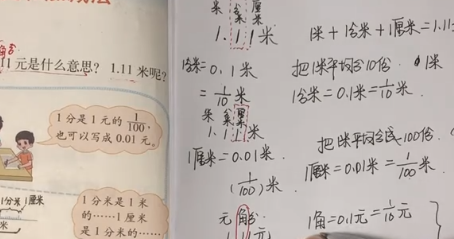 角分
11元是什么意思? 1.11米呢?
1分是1元的1/100,
也可以写成0.01元。
1分米 1厘米
米
1分米是1米
的……1厘米
是1分米的……
米 分米 厘米
1.11米
1米+1分米+1厘米=1.11
1分米=0.1米
=1/10米
把1米平均分10份. 1米
1分米=0.1米=1/10米.
米
1.11米
把1米平均分成100份.
1厘米=0.01米.
(1/100)米
1厘米=0.01米=1/100米.
元角分
1.11元
1角=0.1元=1/10元